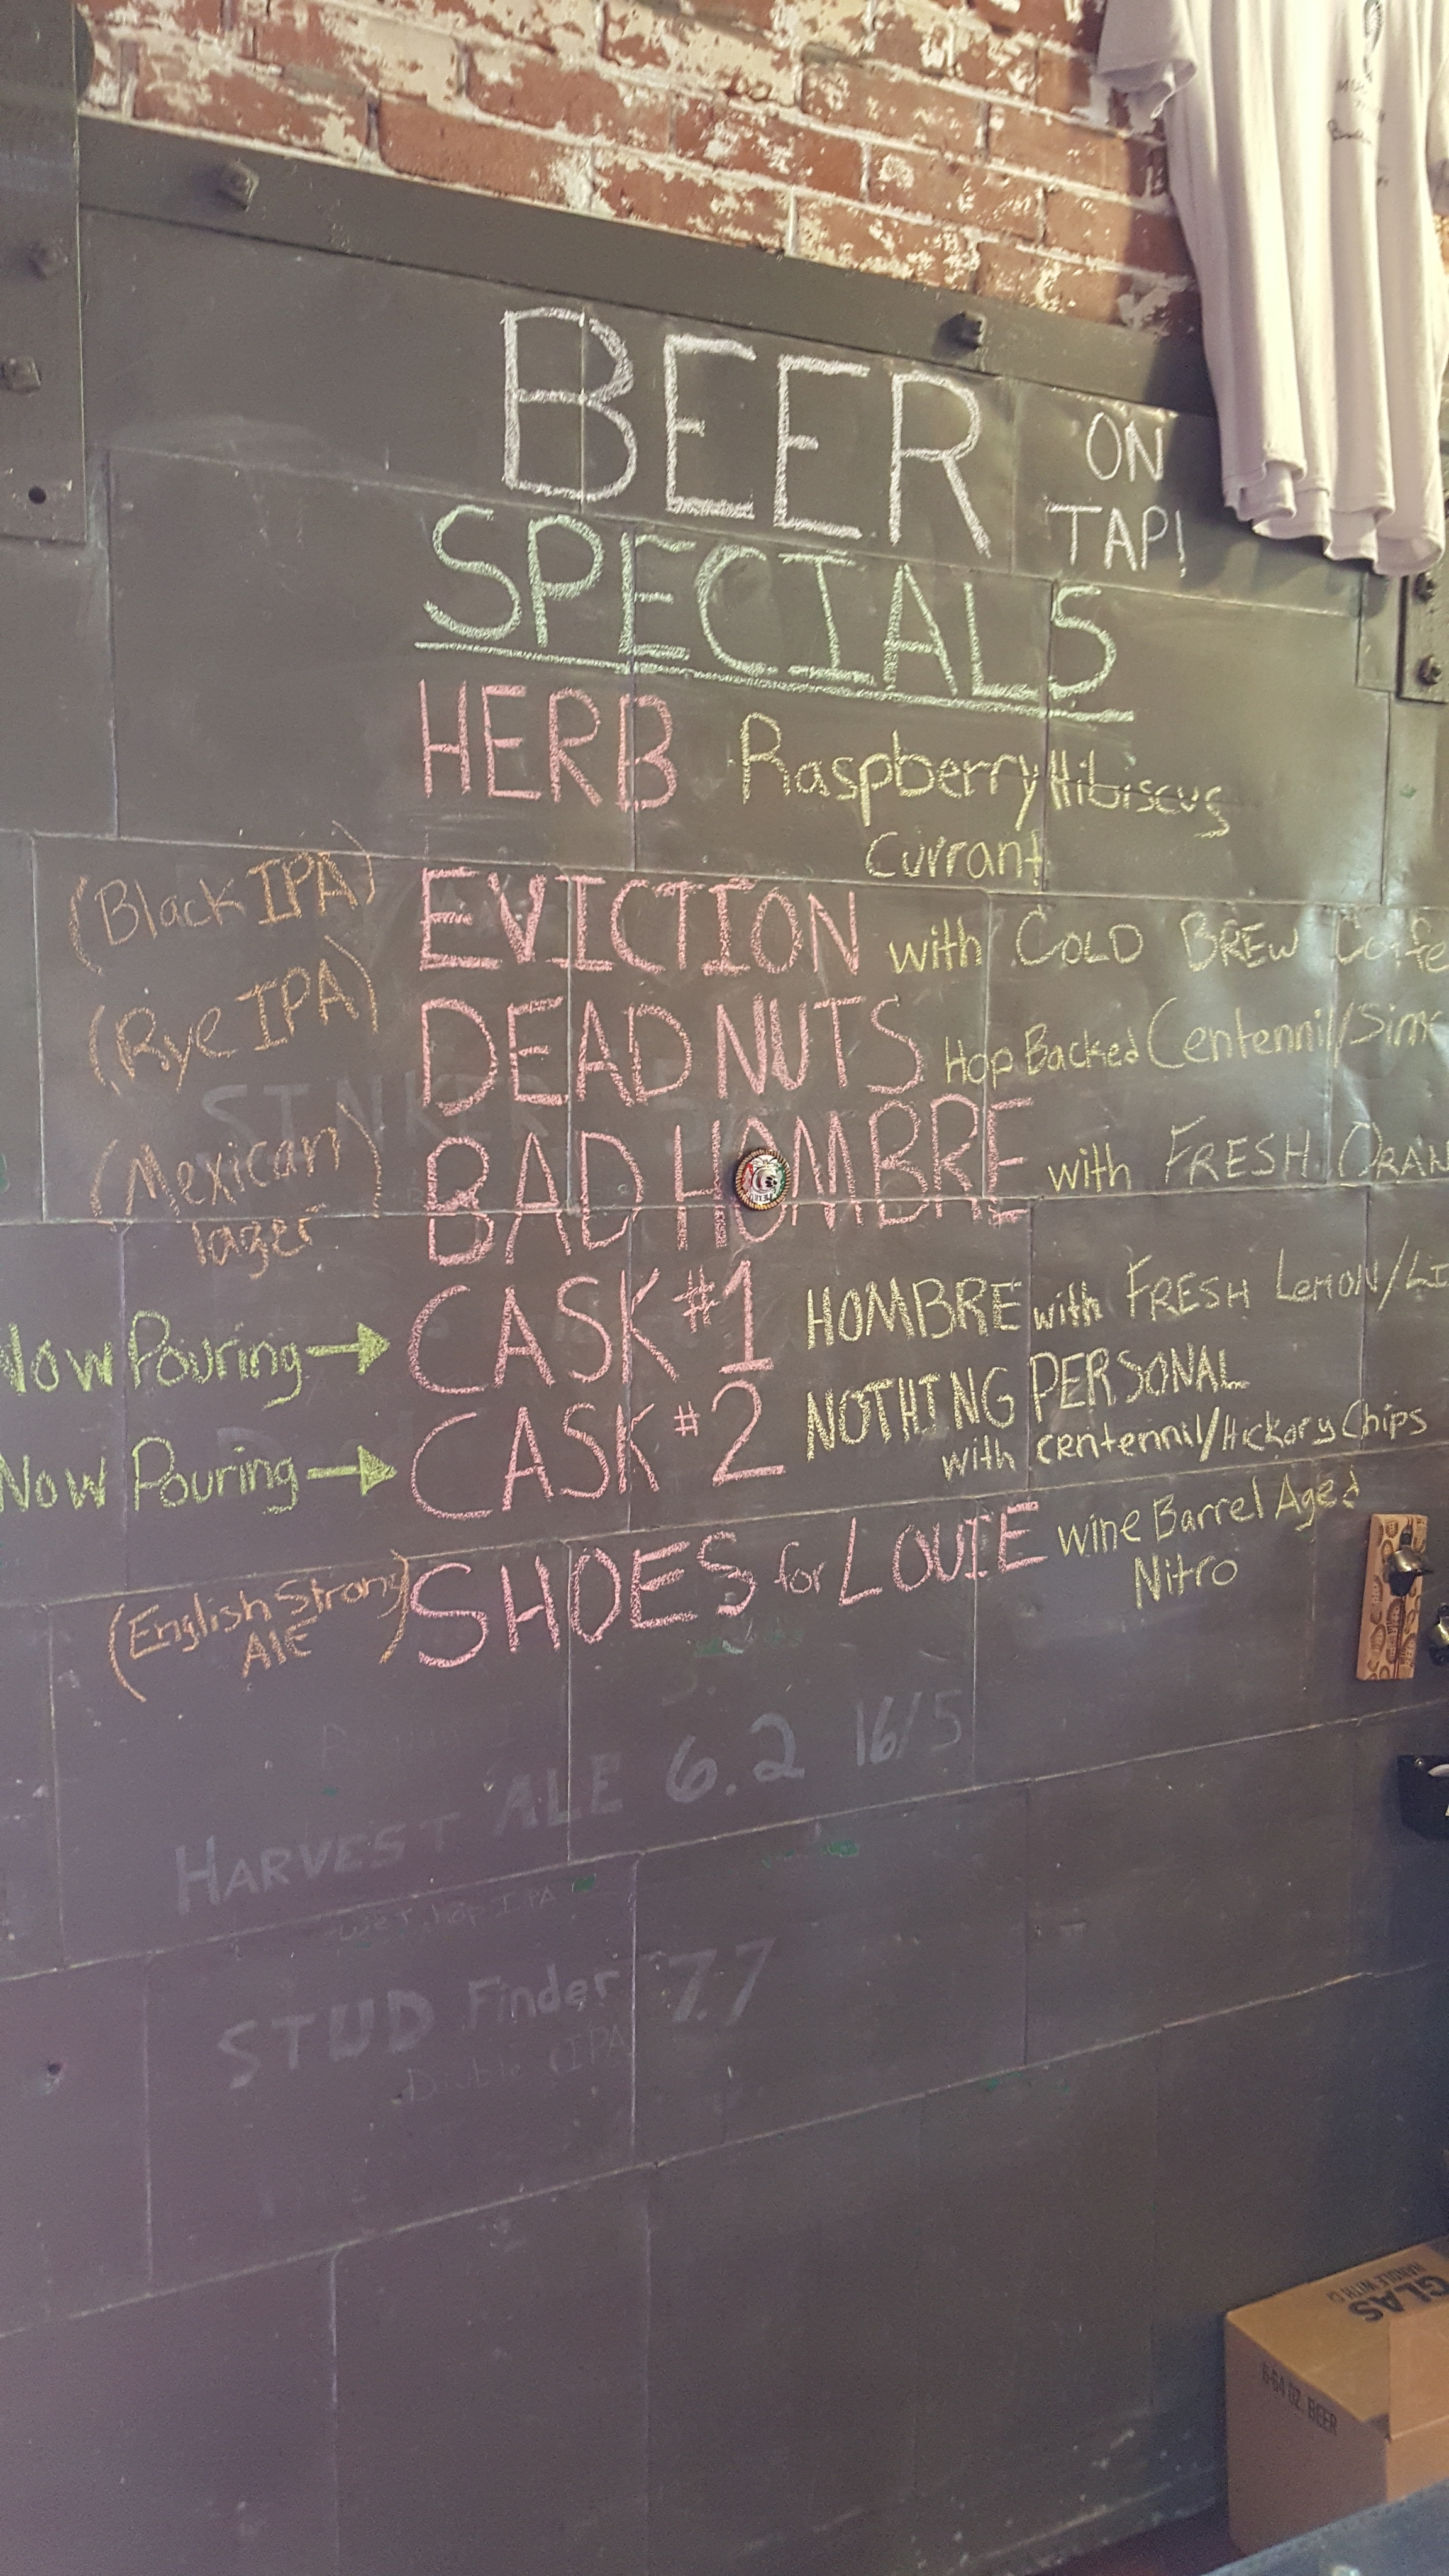 BEER ON TAP!
SPECIALS
HERB Raspberry Hibiscus
Currant
(Black IPA) EVICTION with COLD BREW Coffe
(Rye IPA) DEAD NUTS Hop Backed Centennil/Simc
(Mexican lager) BAD HOMBRE with FRESH ORAN
Now Pouring → CASK #1 HOMBRE with FRESH LEMON/LI
Now Pouring → CASK #2 NOTHING PERSONAL
with centennil/Hickory Chips
(English Strong AlE) SHOES for LOUIE Wine Barrel Aged
Nitro
HARVEST ALE 6.2 16/5
wet hop IPA
STUD Finder 7.7
Double IPA
GLAS
6-64 OZ. BEER